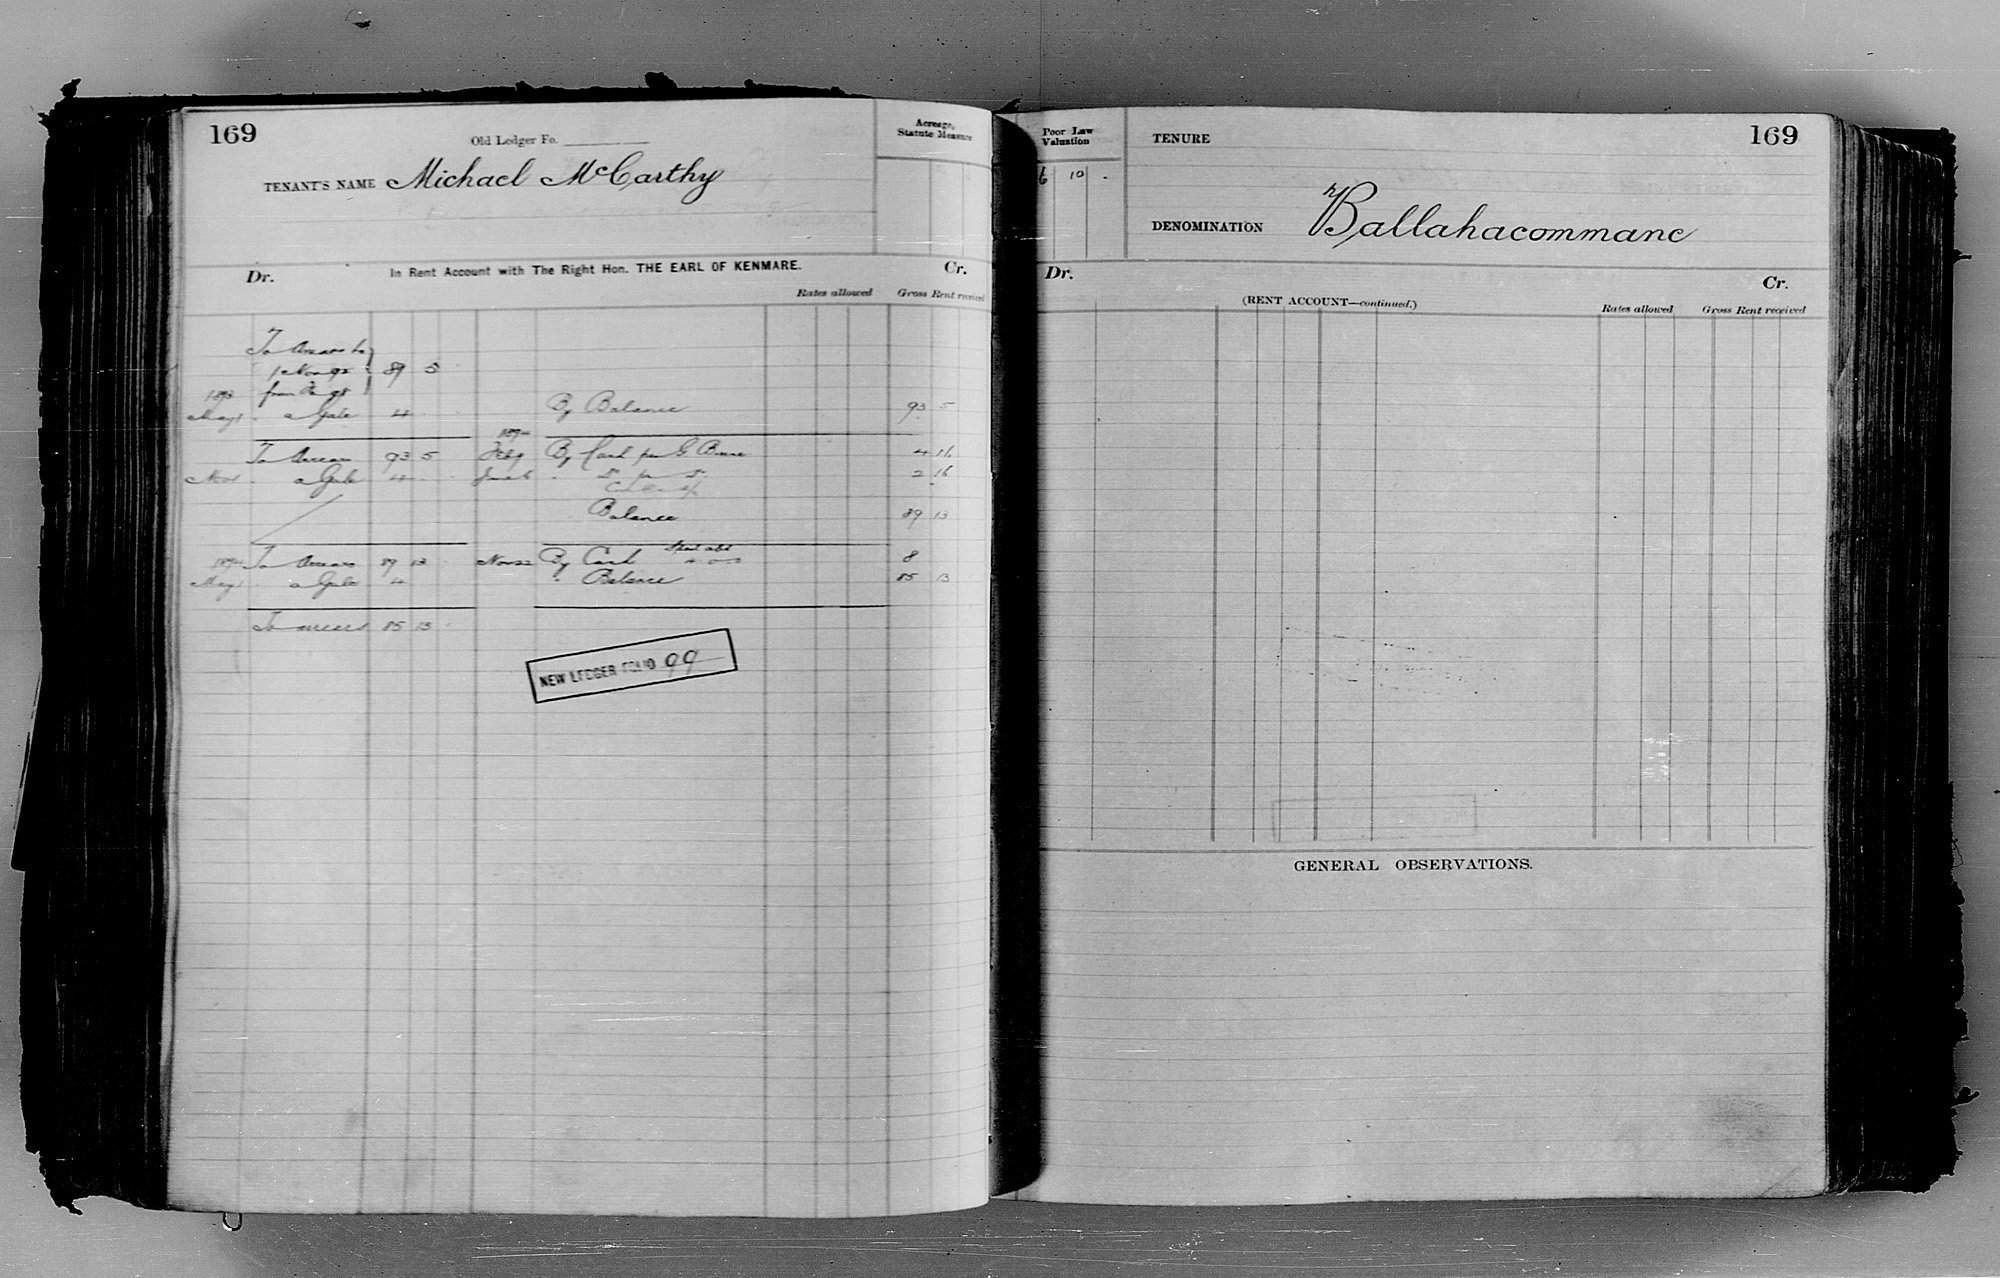 169
Old Ledger Fo.
Acreage,
Statute Measure
TENANT'S NAME Michael McCarthy
Dr. In Rent Account with The Right Hon. THE EARL OF KENMARE. Cr.
Rates allowed Gross Rent received
To Arrears to
1 Nov 92 89 5
1893 from
May 1 a Gale 4 By Balance 93 5
1894
To Arrears 93 5 Feb 9 By Cash per G 4 16
Nov 1 a Gale 4 June 6 " Do per Do 2 16
Balance 89 13
1894 To Arrears 89 13 Nov 22 By Cash 8
May 1 a Gale 4 " Balance 85 13
To arrears 85 13
NEW LEDGER FOLIO 99
Poor Law
Valuation
6 10 .
TENURE
169
DENOMINATION Ballahacommane
Dr. Cr.
(RENT ACCOUNT—continued.)
Rates allowed Gross Rent received
GENERAL OBSERVATIONS.